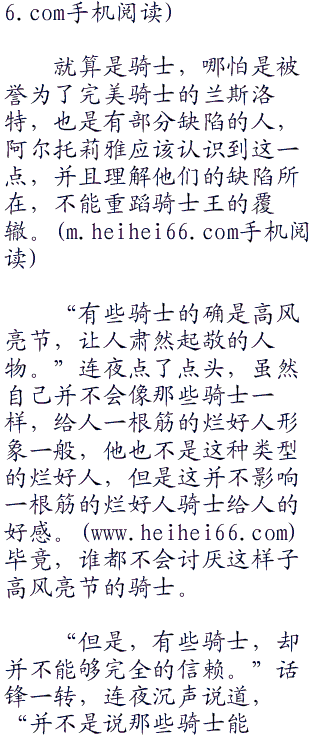 6.com手机阅读)
就算是骑士，哪怕是被
誉为了完美骑士的兰斯洛
特，也是有部分缺陷的人，
阿尔托莉雅应该认识到这一
点，并且理解他们的缺陷所
在，不能重蹈骑士王的覆
辙。(m.heihei66.com手机阅
读)
“有些骑士的确是高风
亮节，让人肃然起敬的人
物。”连夜点了点头，虽然
自己并不会像那些骑士一
样，给人一根筋的烂好人形
象一般，他也不是这种类型
的烂好人，但是这并不影响
一根筋的烂好人骑士给人的
好感。(www.heihei66.com)
毕竟，谁都不会讨厌这样子
高风亮节的骑士。
“但是，有些骑士，却
并不能够完全的信赖。”话
锋一转，连夜沉声说道，
“并不是说那些骑士能